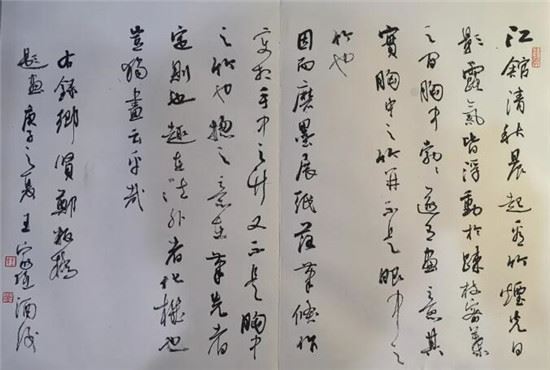 江館清秋晨起看竹煙光日
影露氣皆浮動於疎枝密葉
之間胸中勃勃遂有畫意其
實胸中之竹并不是眼中之
竹也
因而磨墨展紙落筆倏作
變相手中之竹又不是胸中
之竹也總之意在筆先者
定則也趣在法外者化機也
豈獨畫云乎哉
右錄鄉賢鄭板橋
題畫庚子之夏王家